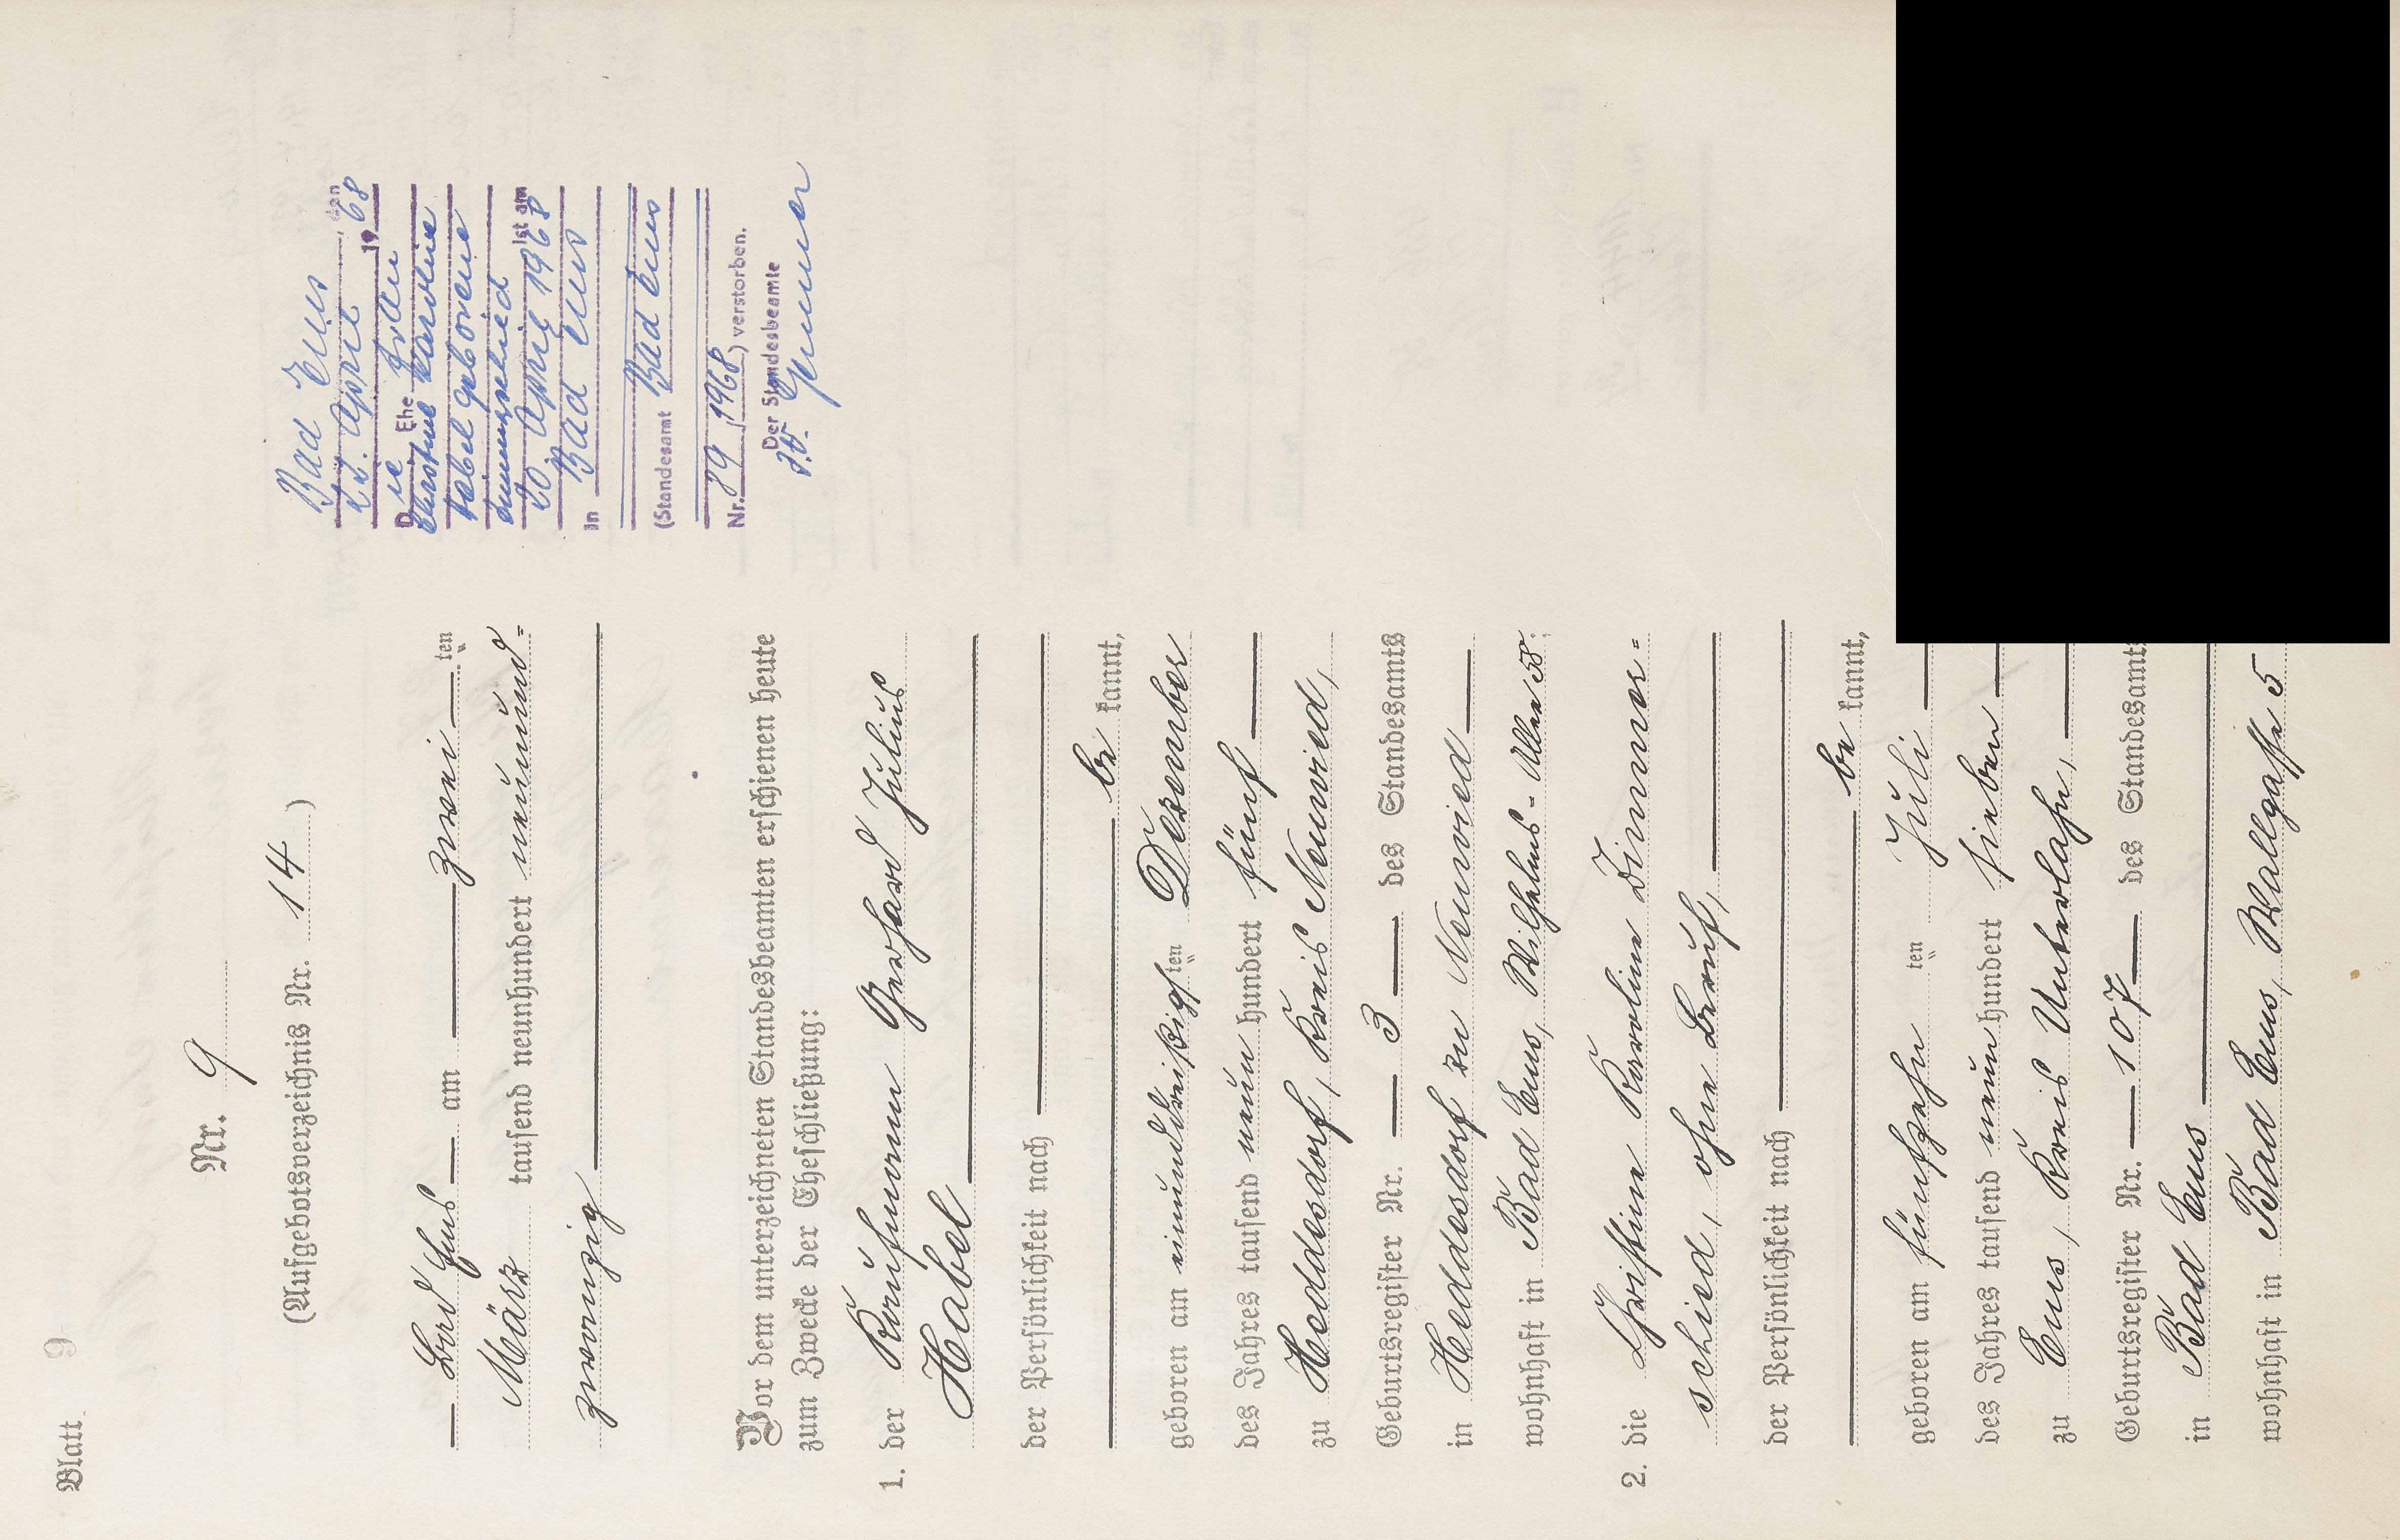 Blatt 9
Nr. 9
(Aufgebotsverzeichnis Nr. 14)
Bad Ems am zwei ten
März tausend neunhundert neunund=
zwanzig
Vor dem unterzeichneten Standesbeamten erschienen heute
zum Zwecke der Eheschließung:
1. der Kaufmann Gerhard Julius
Habel
der Persönlichkeit nach
be kannt,
geboren am einunddreißigsten Dezember
des Jahres tausend neun hundert fünf
zu Heddesdorf, Kreis Neuwied,
Geburtsregister Nr. 3 des Standesamts
in Heddesdorf zu Neuwied
wohnhaft in Bad Ems, Wilhelms-Allee 58;
2. die Christine Karoline Dimmer=
schied, ohne Beruf,
der Persönlichkeit nach
be kannt,
geboren am fünfzehn ten Juli
des Jahres tausend neun hundert sieben
zu Ems, Kreis Unterlahn,
Geburtsregister Nr. 107 des Standesamts
in Bad Ems
wohnhaft in Bad Ems, Wallgasse 5
Bad Ems, den
22. April 1968
Die Ehefrau
Christine Karoline
Habel geborene
Dimmerschied ist am
20. April 1968
in Bad Ems
(Standesamt Bad Ems
Nr. 89/1968) verstorben.
Der Standesbeamte